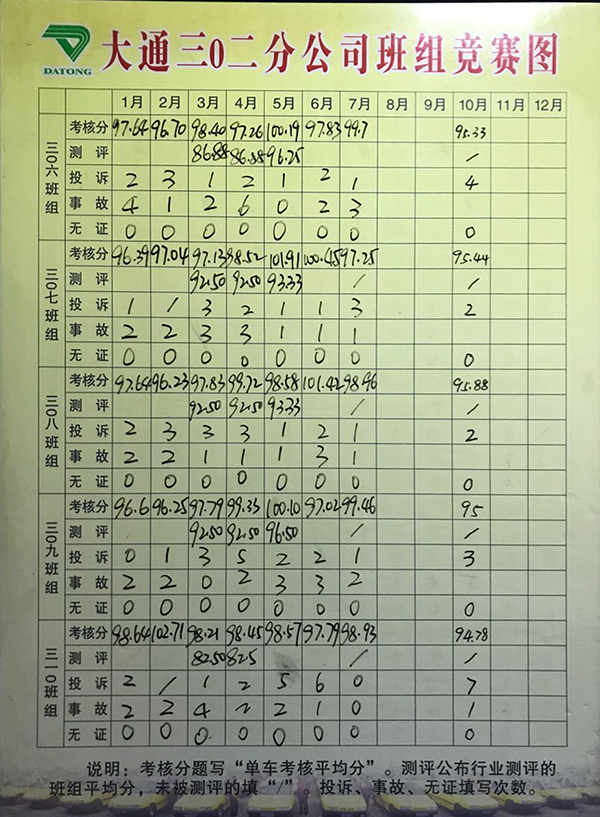 DATONG
大通三0二分公司班组竞赛图
1月 2月 3月 4月 5月 6月 7月 8月 9月 10月 11月 12月
三〇六班组
考核分 97.64 96.70 98.40 97.26 100.19 97.83 99.7 95.33
测评 86.88 86.88 96.25 /
投诉 2 3 1 2 1 2 1 4
事故 4 1 2 6 0 2 3
无证 0 0 0 0 0 0 0 0
三〇七班组
考核分 96.39 97.04 97.13 98.52 101.91 100.45 97.25 95.44
测评 92.50 92.50 93.33 / /
投诉 1 / 3 2 1 1 3 2
事故 2 2 3 3 1 1 1
无证 0 0 0 0 0 0 0 0
三〇八班组
考核分 97.64 96.23 97.83 99.72 98.58 101.42 98.96 95.88
测评 92.50 92.50 93.33 / /
投诉 2 3 3 3 1 2 1 2
事故 2 2 1 1 1 3 1
无证 0 0 0 0 0 0 0 0
三〇九班组
考核分 96.6 96.25 97.79 99.33 100.10 97.02 99.46 95
测评 92.50 92.50 96.50 / /
投诉 0 1 3 5 2 2 1 3
事故 2 2 0 2 3 3 2
无证 0 0 0 0 0 0 0 0
三一〇班组
考核分 98.64 102.71 98.21 98.45 98.57 97.79 98.93 94.78
测评 82.50 82.5 / /
投诉 2 / 1 2 5 6 0 7
事故 2 2 4 2 2 1 0 1
无证 0 0 0 0 0 0 0 0
说明：考核分题写“单车考核平均分”。测评公布行业测评的
班组平均分，未被测评的填“/”。投诉、事故、无证填写次数。